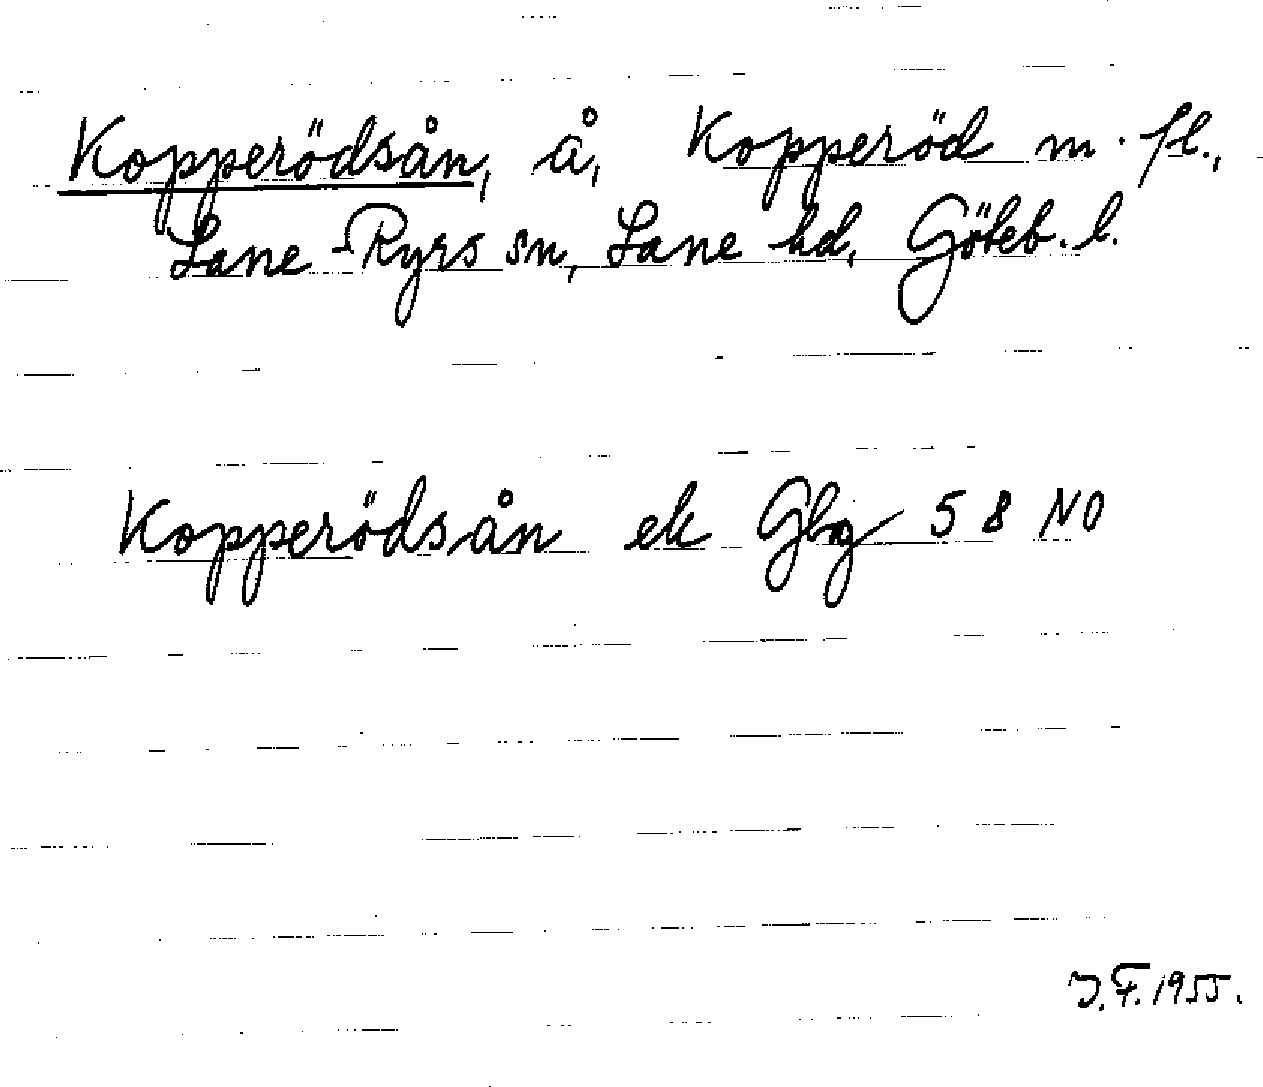 Kopperödsån, å, Kopperöd m. fl.,
Lane-Ryrs sn, Lane hd, Göteb. l.
Kopperödsån ek Gbg 58 NO
J.F. 1955.